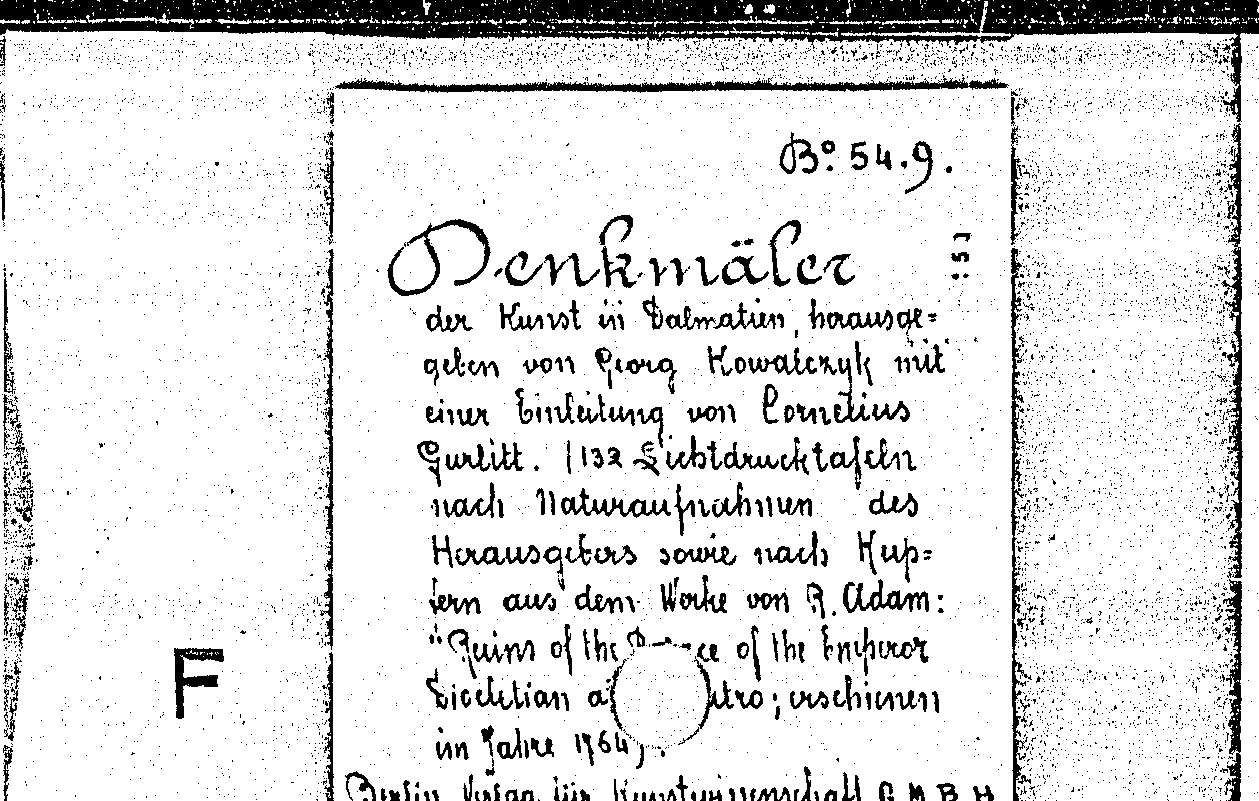 Bº. 54.9.
Denkmäler
der Kunst in Dalmatien, herausge=
geben von Georg Kowalczyk mit
einer Einleitung von Cornelius
Gurlitt. |132 Lichtdrucktafeln
nach Naturaufnahmen des
Herausgebers sowie nach Kup=
fern aus dem Werke von R. Adam:
"Ruins of the of the Emperor
Diocletian erschienen
im Jahre 1764).
Berlin Verlag für Kunstwissenschaft G M B H
F